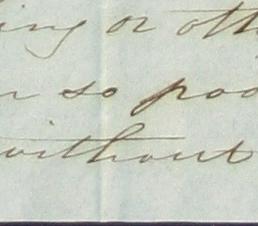 ing or oth
n so poo
without